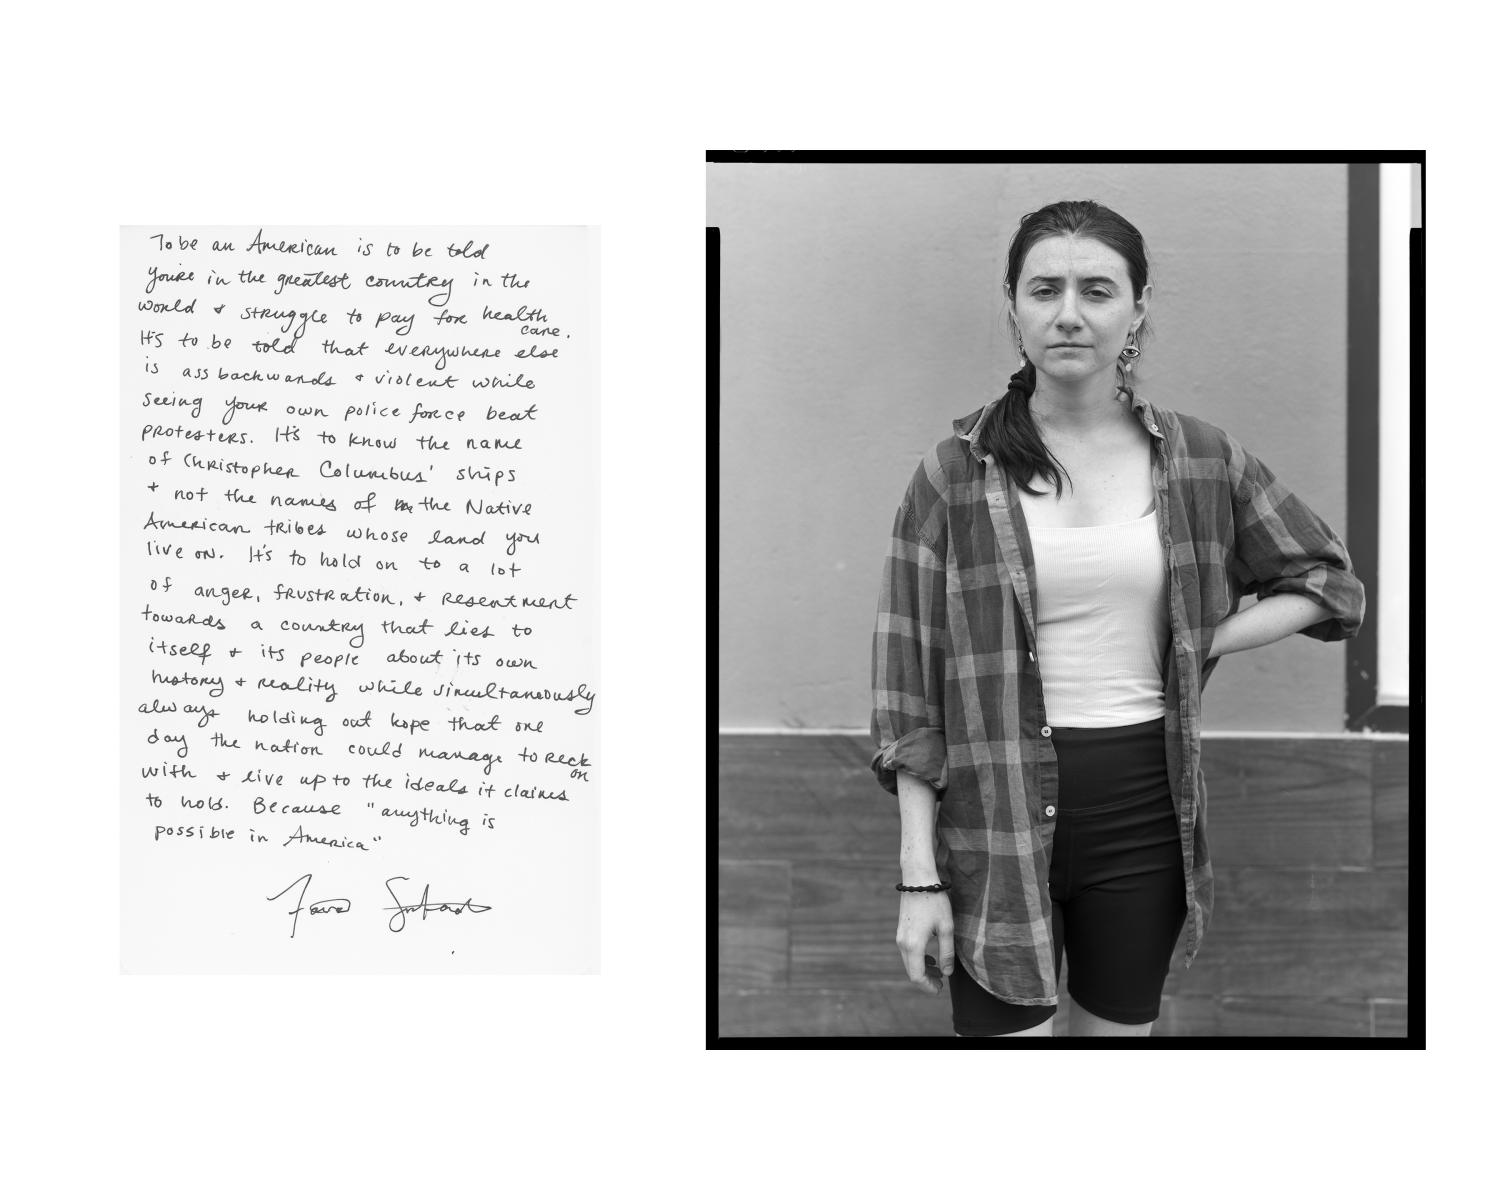 To be an American is to be told
you're in the greatest country in the
world & struggle to pay for health
care.
It's to be told that everywhere else
is ass backwards & violent while
seeing your own police force beat
protesters. It's to know the name
of Christopher Columbus' ships
& not the names of the Native
American tribes whose land you
live on. It's to hold on to a lot
of anger, frustration, & resentment
towards a country that lies to
itself & its people about its own
history & reality while simultaneously
always holding out hope that one
day the nation could manage to reck
on
with & live up to the ideals it claims
to hold. Because "anything is
possible in America"